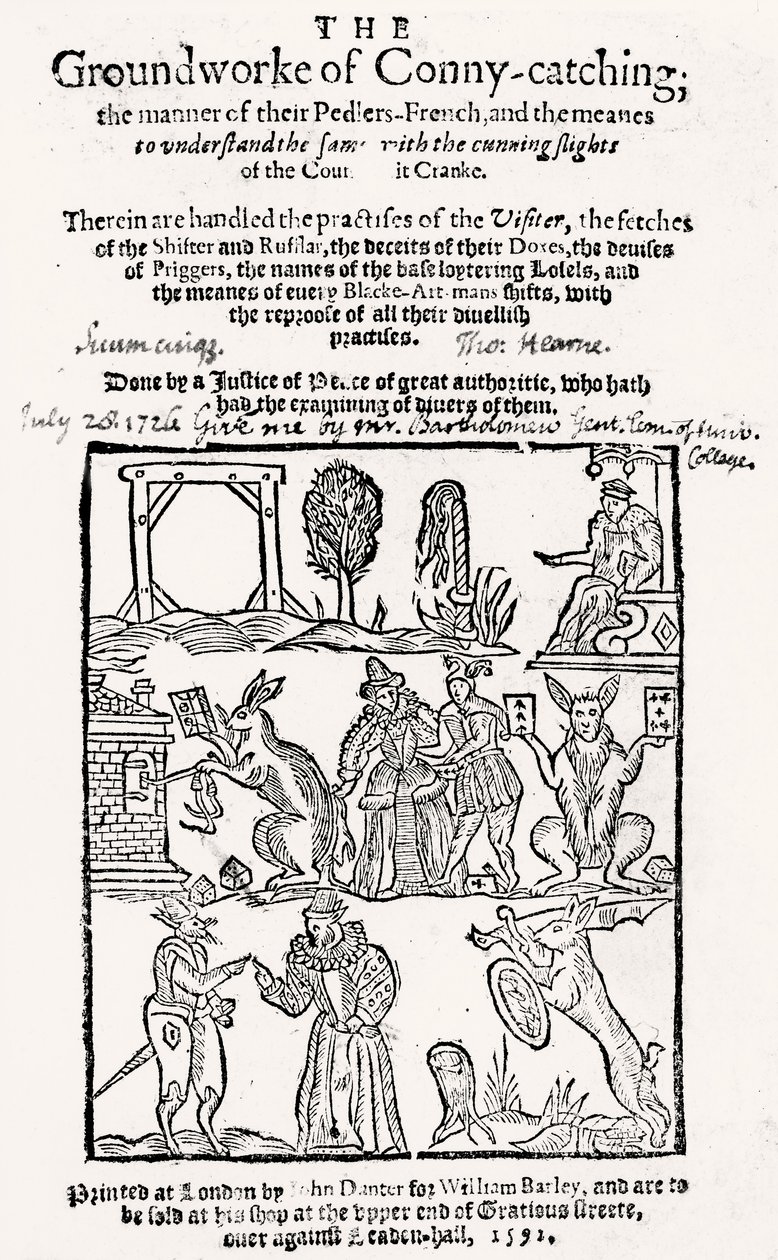 THE
Groundworke of Conny-catching;
the manner of their Pedlers-French, and the meanes
to vnderſtand the ſame with the cunning ſlights
of the it Cranke.
Therein are handled the practiſes of the Viſiter, the fetches
of the Shifter and Rufflar, the deceits of their Doxes, the deuiſes
of Priggers, the names of the baſe loytering Loſels, and
the meanes of euery Blacke-Art-mans ſhifts, with
the reproofe of all their diuelliſh
practiſes.
Suum cuiq;. Tho: Hearne.
Done by a Juſtice of Peace of great authoritie, who hath
had the examining of diuers of them.
July 28. 1726 Give me by Mr. Bartholomew Gent. Com. of Univ.
College.
Printed at London by John Danter for William Barley, and are to
be ſold at his ſhop at the vpper end of Gratious ſtreete,
ouer againſt Leaden-hall, 1592.